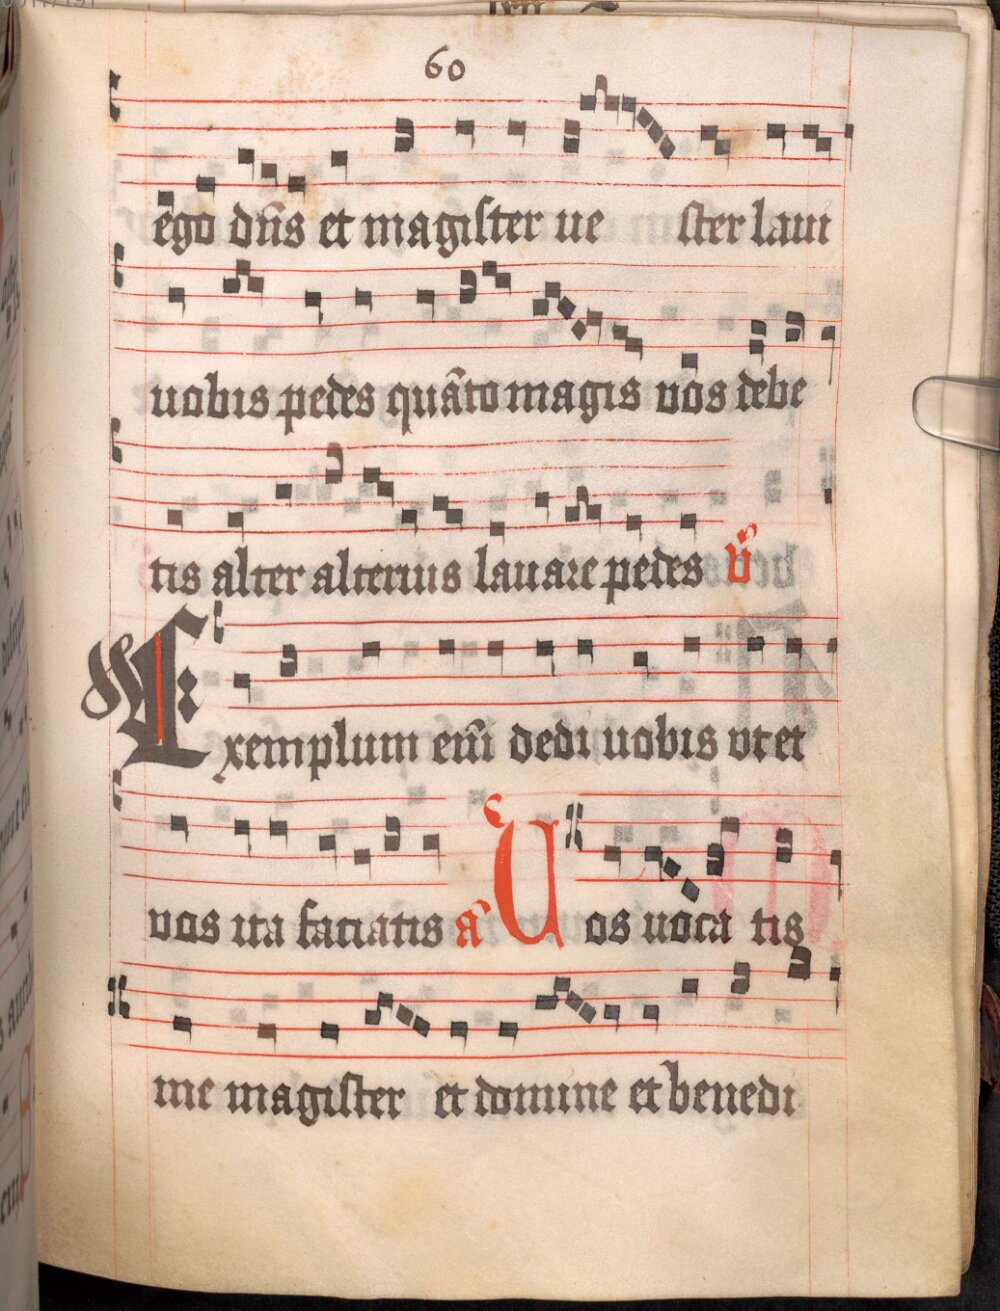 60
ego dn̄s et magiſter ue ſter laui
uobis pedes quāto magis uos debe
tis alter alterius lauare pedes v̄
Exemplum em̄ dedi uobis vt et
vos ita faciatis a̅ Uos uoca tis
me magiſter et domine et benedi